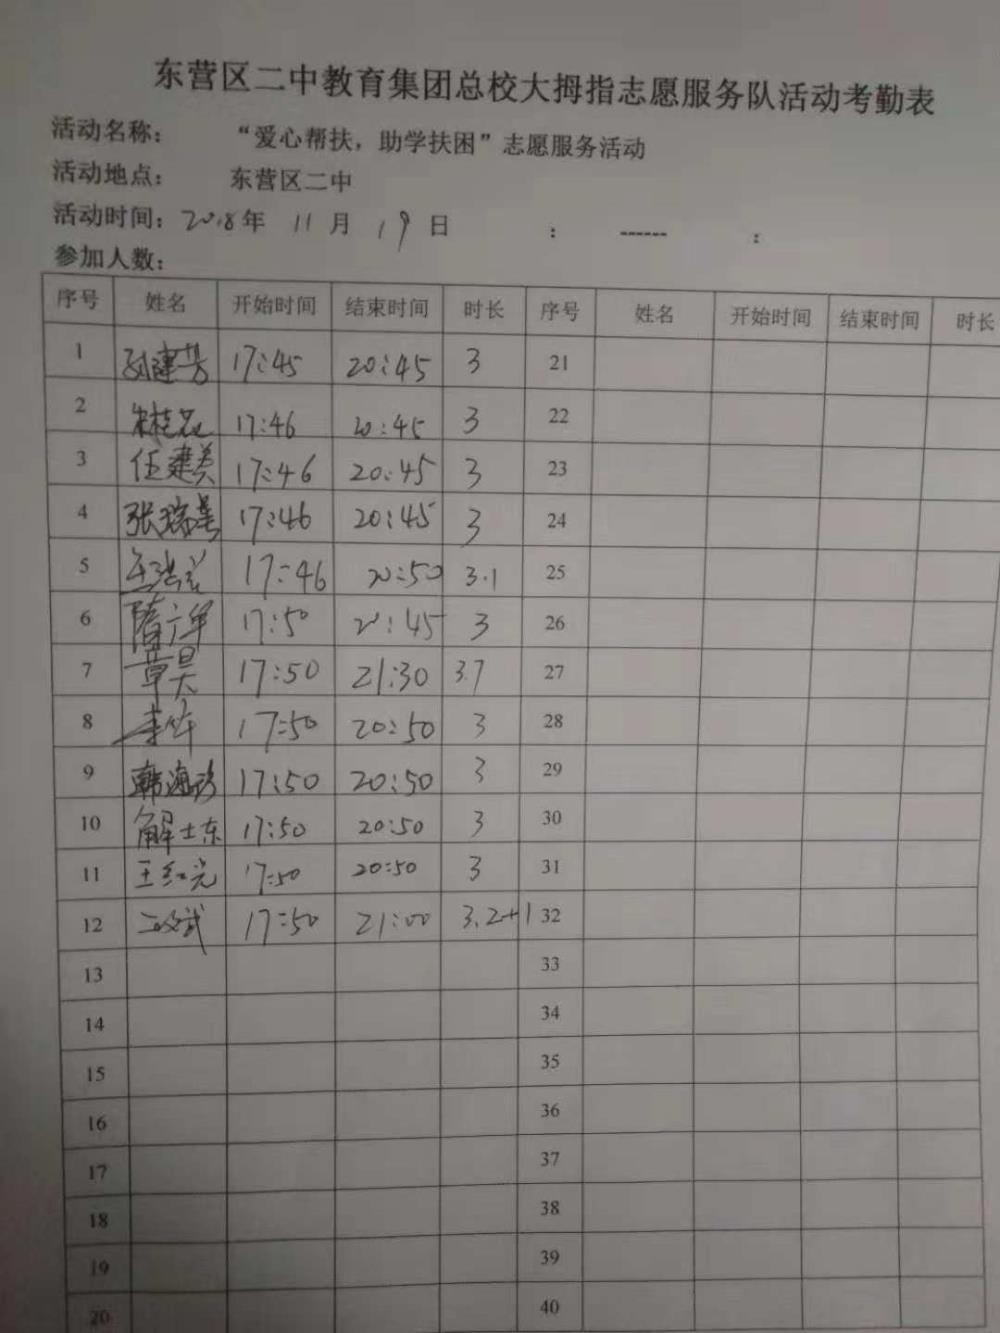 东营区二中教育集团总校大拇指志愿服务队活动考勤表
活动名称： “爱心帮扶，助学扶困”志愿服务活动
活动地点： 东营区二中
活动时间：2018年 11月 19日 ： ------ ：
参加人数：
序号 姓名 开始时间 结束时间 时长 序号 姓名 开始时间 结束时间 时长
1 孙建芳 17:45 20:45 3 21
2 17:46 20:45 3 22
3 任建美 17:46 20:45 3 23
4 张瑞美 17:46 20:45 3 24
5 17:46 20:50 3.1 25
6 隋广军 17:50 20:45 3 26
7 章昊 17:50 21:30 3.7 27
8 李华 17:50 20:50 3 28
9 韩海珍 17:50 20:50 3 29
10 解士东 17:50 20:50 3 30
11 王红光 17:50 20:50 3 31
12 17:50 21:00 3.2+1 32
13 33
14 34
15 35
16 36
17 37
18 38
19 39
20 40